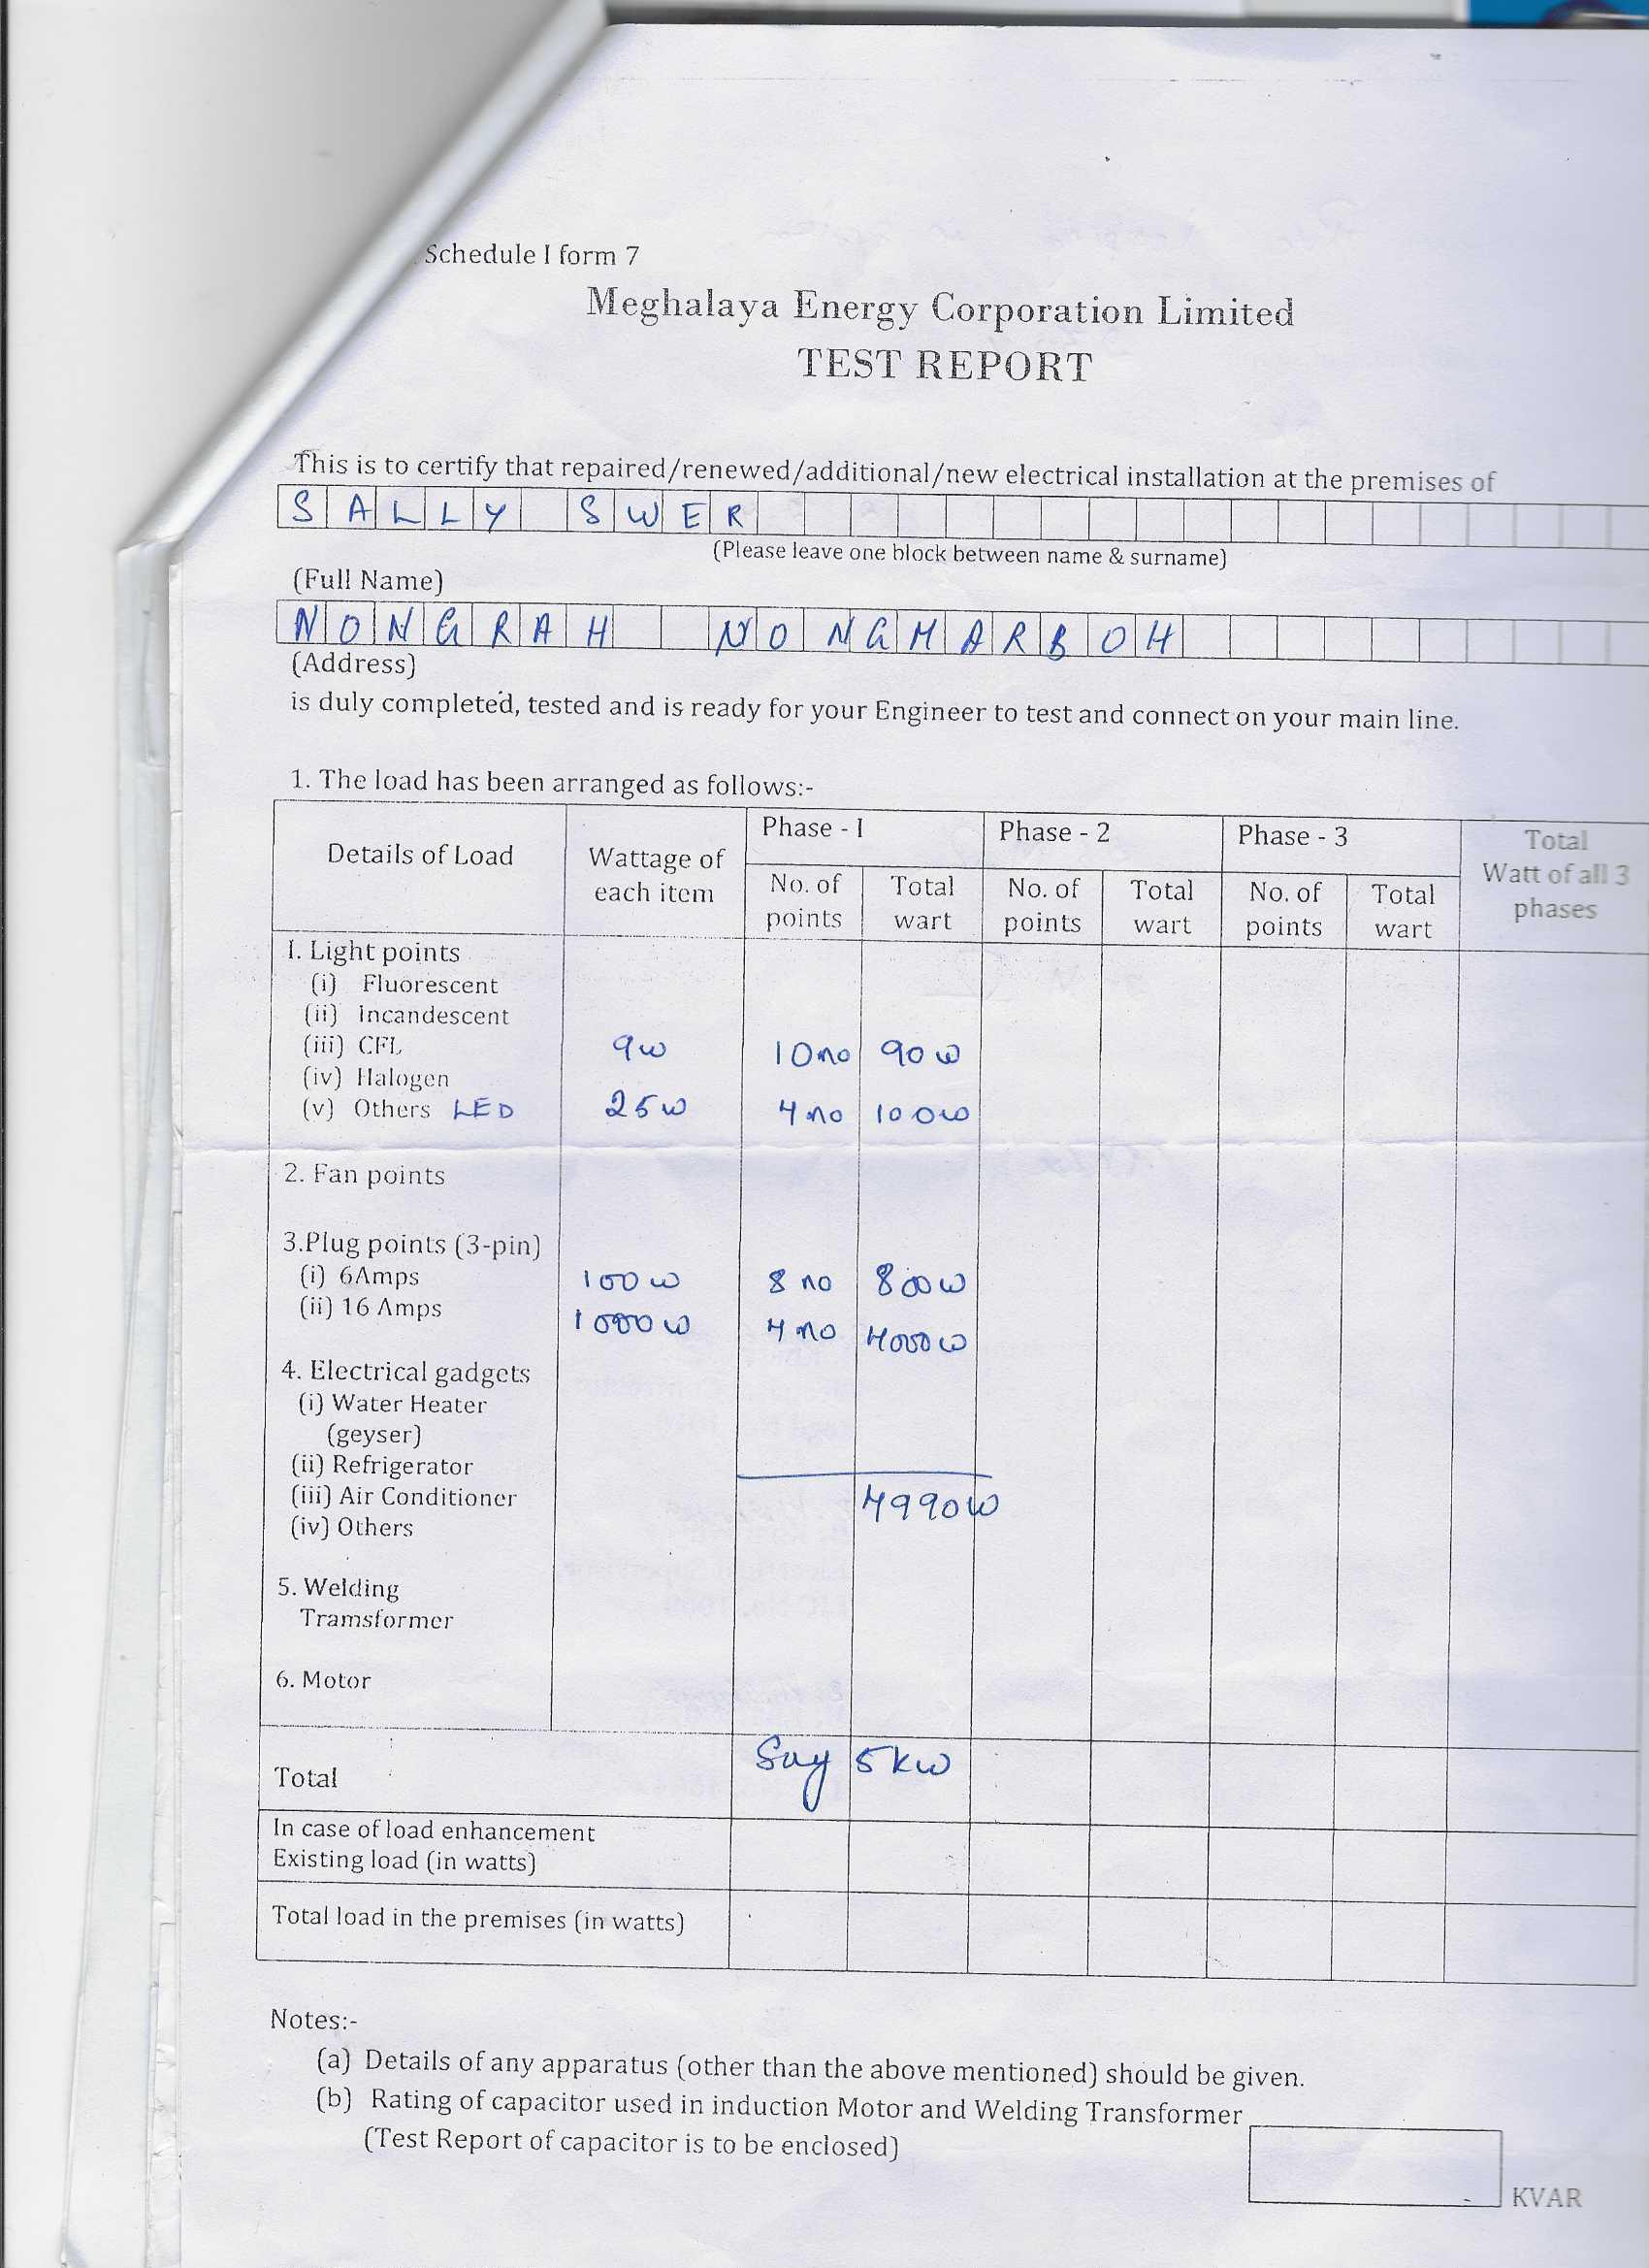 Schedule I form 7
Meghalaya Energy Corporation Limited
TEST REPORT
This is to certify that repaired/renewed/additional/new electrical installation at the premises of
SALLY SWER
(Please leave one block between name & surname)
(Full Name)
NONGRAH NONGMARBOH
(Address)
is duly completed, tested and is ready for your Engineer to test and connect on your main line.
1. The load has been arranged as follows:-
Details of Load Wattage of each item Phase - I Phase - 2 Phase - 3 Total Watt of all 3 phases
No. of points Total wart No. of points Total wart No. of points Total wart
I. Light points
(i) Fluorescent
(ii) Incandescent
(iii) CFL 9w 10no 90w
(iv) Halogen
(v) Others LED 25w 4no 100w
2. Fan points
3.Plug points (3-pin)
(i) 6Amps 100w 8 no 800w
(ii) 16 Amps 1000w 4 no 4000w
4. Electrical gadgets
(i) Water Heater
(geyser)
(ii) Refrigerator
(iii) Air Conditioner 4990w
(iv) Others
5. Welding
Tramsformer
6. Motor
Total Say 5kw
In case of load enhancement
Existing load (in watts)
Total load in the premises (in watts)
Notes:-
(a) Details of any apparatus (other than the above mentioned) should be given.
(b) Rating of capacitor used in induction Motor and Welding Transformer
(Test Report of capacitor is to be enclosed)
KVAR